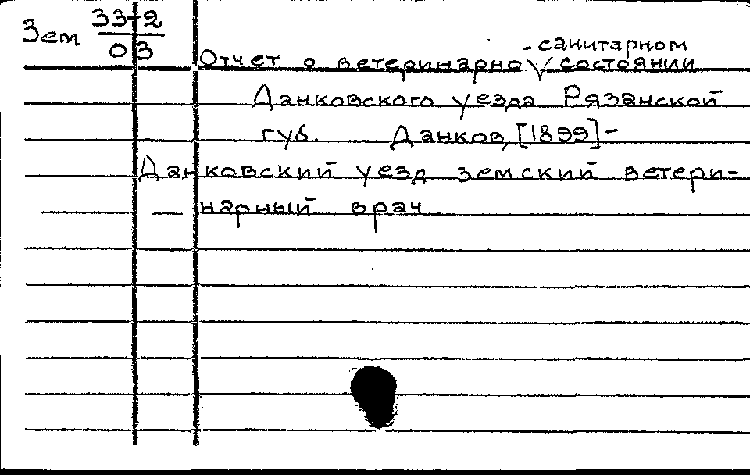 Зем 33-2
03
Отчет о ветеринарно-санитарном состоянии
Данковского уезда Рязанской
губ. Данков, [1899]-
Данковский уезд земский ветери-
нарный врач